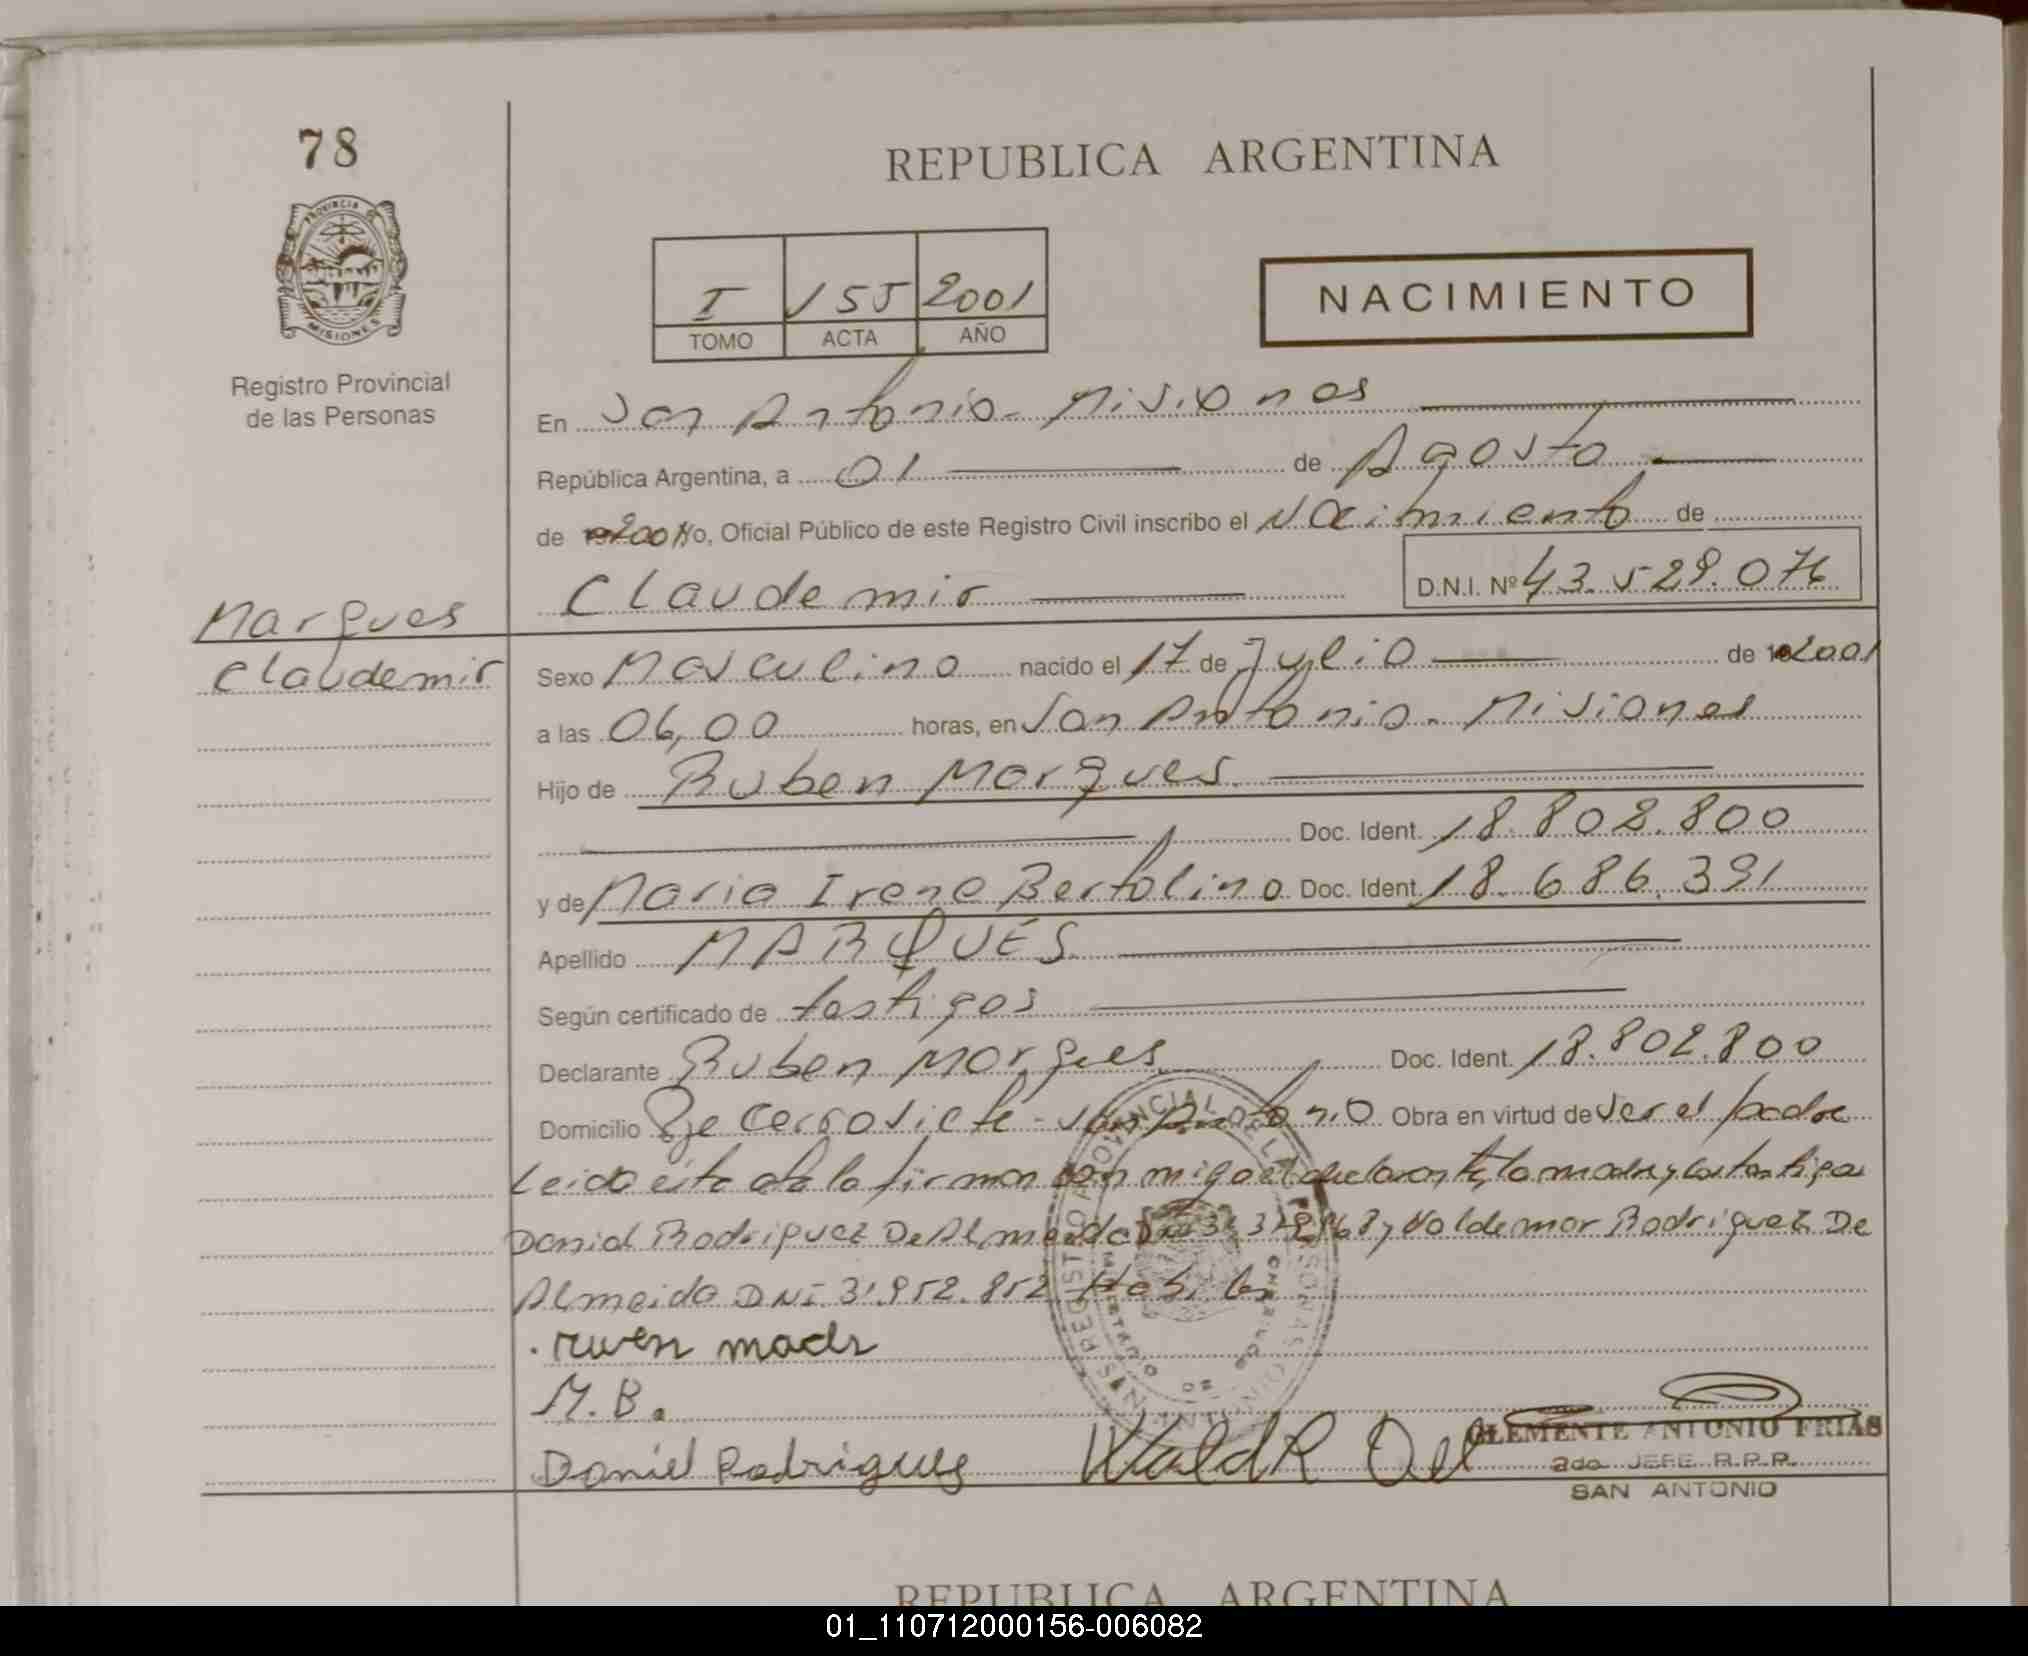 78
REPUBLICA ARGENTINA
PROVINCIA DE
MISIONES
I 155 2001
TOMO ACTA AÑO
NACIMIENTO
Registro Provincial
de las Personas
En San Antonio - Misiones
República Argentina, a 01 de Agosto
de 2001 Yo, Oficial Público de este Registro Civil inscribo el Nacimiento de
Claudemir D.N.I. Nº 43.529.076
Marques
Claudemir
Sexo Masculino nacido el 17 de Julio de 2001
a las 06,00 horas, en San Antonio - Misiones
Hijo de Ruben Marques
Doc. Ident. 18.802.800
y de Maria Irene Bertolino Doc. Ident. 18.686.391
Apellido MARQUÉS
Según certificado de testigos
Declarante Ruben Marques Doc. Ident. 18.802.800
Domicilio Pje Cerro siete - San Antonio Obra en virtud de ser el padre
Leida esta acta la firman con migo el declarante, la madre y los testigos
Daniel Rodriguez De Almeida y Valdemar Rodriguez De
Almeida DNI 31.952.852
ruven
M.B.
Daniel Rodrigues
CLEMENTE ANTONIO FRIAS
2do JEFE R.P.P.
SAN ANTONIO
REPUBLICA ARGENTINA
01_110712000156-006082